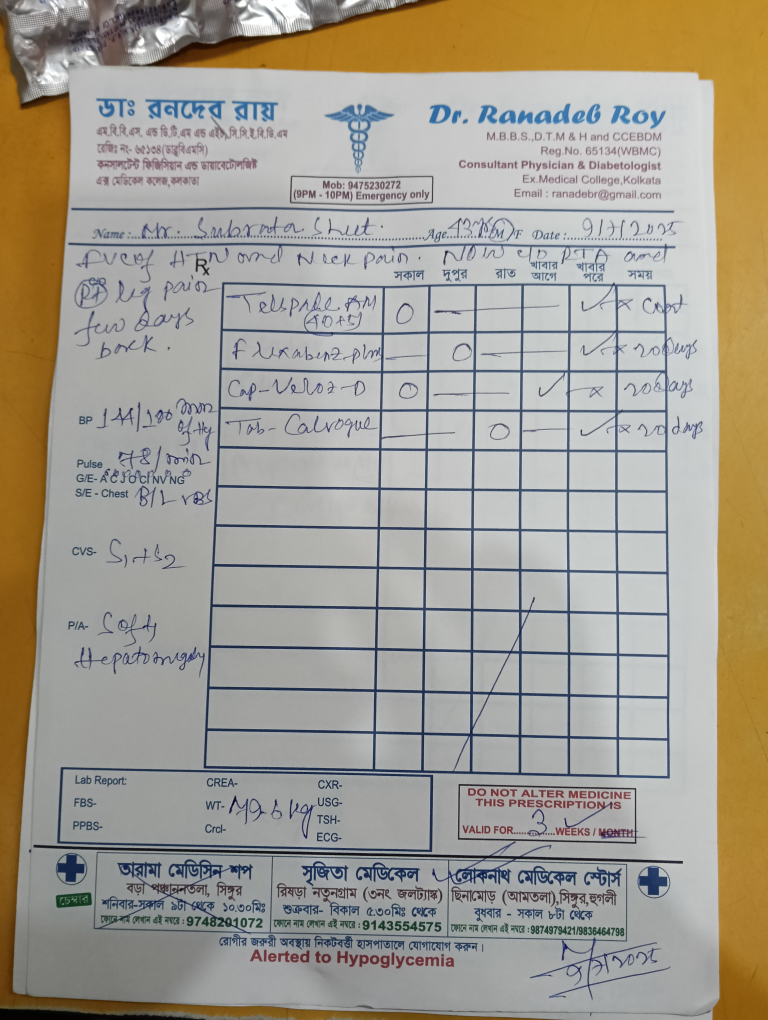 ডাঃ রনদেব রায়
এম.বি.বি.এস, এন্ড ডি.টি.এম এন্ড এইচ, সি.সি.ই.বি.ডি.এম
রেজিঃ নং- ৬৫১৩৪(ডাব্লুবিএমসি)
কনসালটেন্ট ফিজিসিয়ান এন্ড ডায়াবেটোলজিষ্ট
এক্স মেডিকেল কলেজ,কলকাতা
Mob: 9475230272
(9PM - 10PM) Emergency only
Dr. Ranadeb Roy
M.B.B.S.,D.T.M & H and CCEBDM
Reg.No. 65134(WBMC)
Consultant Physician & Diabetologist
Ex.Medical College,Kolkata
Email : ranadebr@gmail.com
Name : Mr. Subrata Sheet. Age 43 M/F Date : 9/7/2025
HTN and Neck pain. Now c/o RTA and
Rt leg pain
few days
back.
Rx
সকাল দুপুর রাত খাবার আগে খাবার পরে সময়
AM (40+5) O — ✓ × cont
Flexabenz plus — O — ✓ × 20 days
Cap-Veloz-D O — ✓ × 20 days
Tab- — O — ✓ × 20 days
BP 144/100 mm of Hg
Pulse 78/min
G/E- A C J O C NV NG
S/E - Chest B/L VBS
CVS- S1+S2
P/A- Soft,
Hepatomegaly
Lab Report: CREA- CXR-
FBS- WT- kg USG-
TSH-
PPBS- Crcl- ECG-
DO NOT ALTER MEDICINE
THIS PRESCRIPTION IS
VALID FOR 3 WEEKS / MONTH
চেম্বার
তারামা মেডিসিন শপ
বড়া পঞ্চাননতলা, সিঙ্গুর
শনিবার-সকাল ৯টা থেকে ১০.৩০মিঃ
ফোনে নাম লেখান এই নম্বরে : 9748201072
সৃজিতা মেডিকেল
রিষড়া নতুনগ্রাম (৩নং জলট্যাঙ্ক)
শুক্রবার- বিকাল ৫.৩০মিঃ থেকে
ফোনে নাম লেখান এই নম্বরে : 9143554575
লোকনাথ মেডিকেল স্টোর্স
ছিনামোড় (আমতলা),সিঙ্গুর,হুগলী
বুধবার - সকাল ৮টা থেকে
ফোনে নাম লেখান এই নম্বরে - 9874979421/9836464798
রোগীর জরুরী অবস্থায় নিকটবর্ত্তী হাসপাতালে যোগাযোগ করুন।
Alerted to Hypoglycemia
9/7/2025